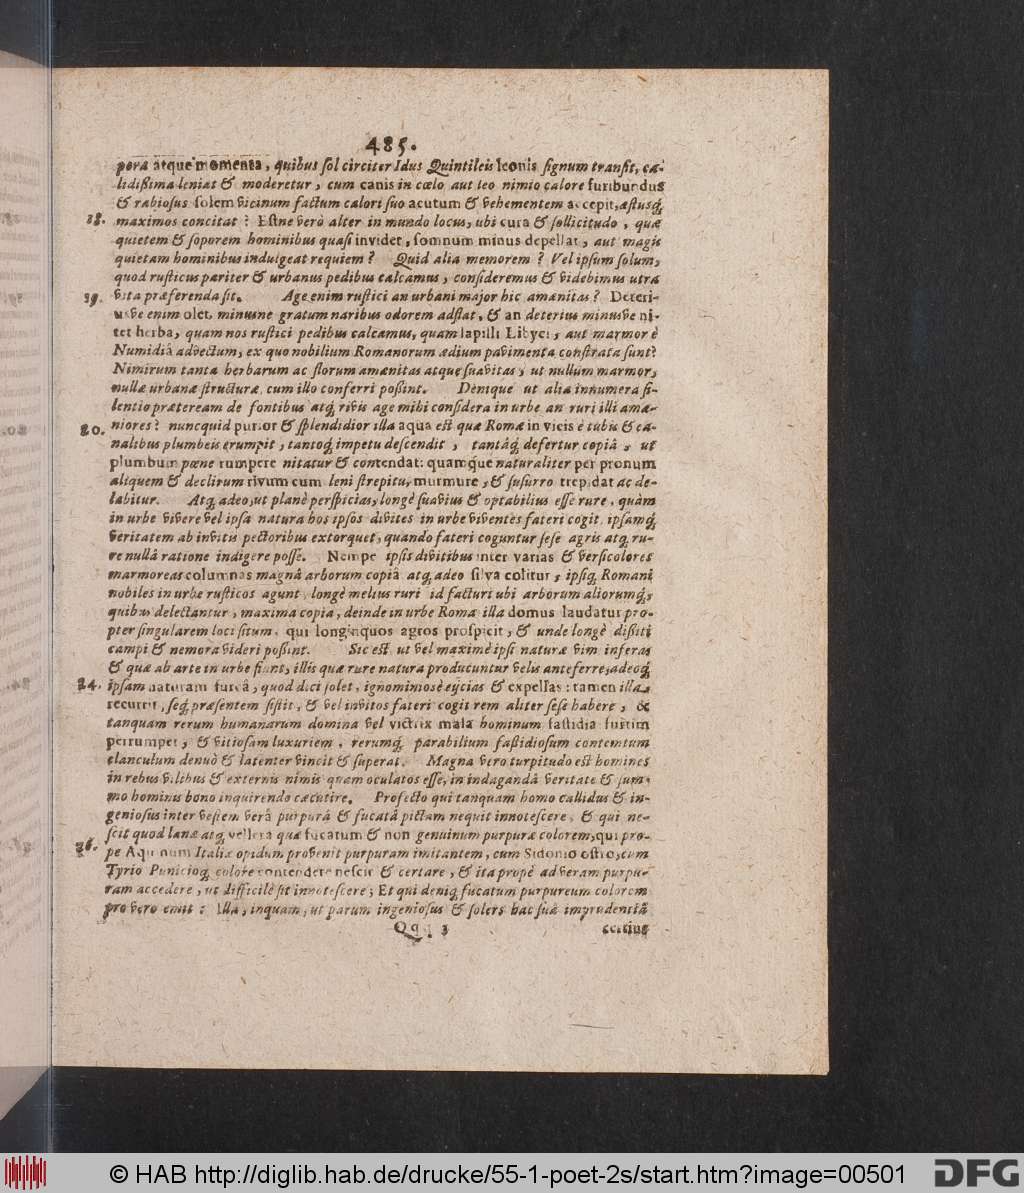 485.
pera atque momenta, quibus sol circiter Idus Quintileis leonis signum transit, ca-
lidißima leniat & moderetur, cum canis in cœlo aut leo nimio calore furibundus
& rabiosus solem vicinum factum calori suo acutum & vehementem accepit, æstusq́
18. maximos concitat? Estne verò alter in mundo locus, ubi cura & sollicitudo, quæ
quietem & soporem hominibus quasi invidet, somnum minus depellat, aut magis
quietam hominibus indulgeat requiem? Quid alia memorem? Vel ipsum solum,
quod rusticus pariter & urbanus pedibus calcamus, consideremus & videbimus utra
19. vita præferenda sit. Age enim rustici an urbani major hic amænitas? Deteri-
usve enim olet, minusne gratum naribus odorem adflat, & an deterius minusve ni-
tet herba, quam nos rustici pedibus calcamus, quam lapilli Libyci, aut marmor è
Numidiâ advectum, ex quo nobilium Romanorum ædium pavimenta constrata sunt?
Nimirum tanta herbarum ac florum amænitas atque suavitas, ut nullum marmor,
nullæ urbanæ structuræ, cum illo conferri poßint. Denique ut alia innumera si-
lentio præteream de fontibus atq́ rivis age mihi considera in urbe an ruri illi amæ-
20. niores? nuncquid purior & splendidior illa aqua est quæ Romæ in vicis è tubis & ca-
nalibus plumbeis erumpit, tantoq́ impetu descendit, tantâq́ defertur copiâ, ut
plumbum pœne rumpere nitatur & contendat: quamque naturaliter per pronum
aliquem & declivum rivum cum leni strepitu, murmure, & susurro trepidat ac de-
labitur. Atq́ adeo, ut planè perspicias, longè suavius & optabilius esse rure, quàm
in urbe vivere vel ipsa natura hos ipsos divites in urbe viventes fateri cogit, ipsamq́
veritatem ab invitis pectoribus extorquet, quando fateri coguntur sese agris atq́ ru-
re nullâ ratione indigere posse. Nempe ipsis divitibus inter varias & versicolores
marmoreas columnas magnâ arborum copiâ atq́ adeo silva colitur, ipsiq́ Romani
nobiles in urbe rusticos agunt, longè melius ruri id facturi ubi arborum aliorumq́,
quibus delectantur, maxima copia, deinde in urbe Roma illa domus laudatur pro-
pter singularem loci situm, qui longinquos agros prospicit, & unde longè dißiti
campi & nemora videri poßint. Sic est ut vel maximè ipsi naturæ vim inferas
& quæ ab arte in urbe fiant, illis quæ rure natura producuntur velis anteferre, adeoq́
24. ipsam naturam furcâ, quod dici solet, ignominiosè ejicias & expellas: tamen illa
recurrit, seq́ præsentem sistit, & vel invitos fateri cogit rem aliter sese habere, &
tanquam rerum humanarum domina vel victrix mala hominum fastidia furtim
perrumpet, & vitiosam luxuriem, rerumq́ parabilium fastidiosum contemtum
clanculum denuò & latenter vincit & superat. Magna vero turpitudo est homines
in rebus vilibus & externis nimis quam oculatos esse, in indagandâ veritate & sum-
mo hominis bono inquirendo cæcutire. Profecto qui tanquam homo callidus & in-
geniosus inter vestem verâ purpurâ & fucatâ pictam nequit innotescere, & qui ne-
scit quod lanæ atq́ vellera quæ fucatum & non genuinum purpuræ colorem, qui pro-
26. pe Aquinum Italiæ opidum provenit purpuram imitantem, cum Sidonio ostro, cum
Tyrio Punicioq́ colore contendere nescit & certare, & ita propè ad veram purpu-
ram accedere, ut difficilè sit innotescere; Et qui deniq́ fucatum purpureum colorem
pro vero emit: Illa, inquam, ut parum ingeniosus & solers hac suâ imprudentiâ
Qqq 3 certius
© HAB http://diglib.hab.de/drucke/55-1-poet-2s/start.htm?image=00501 DFG